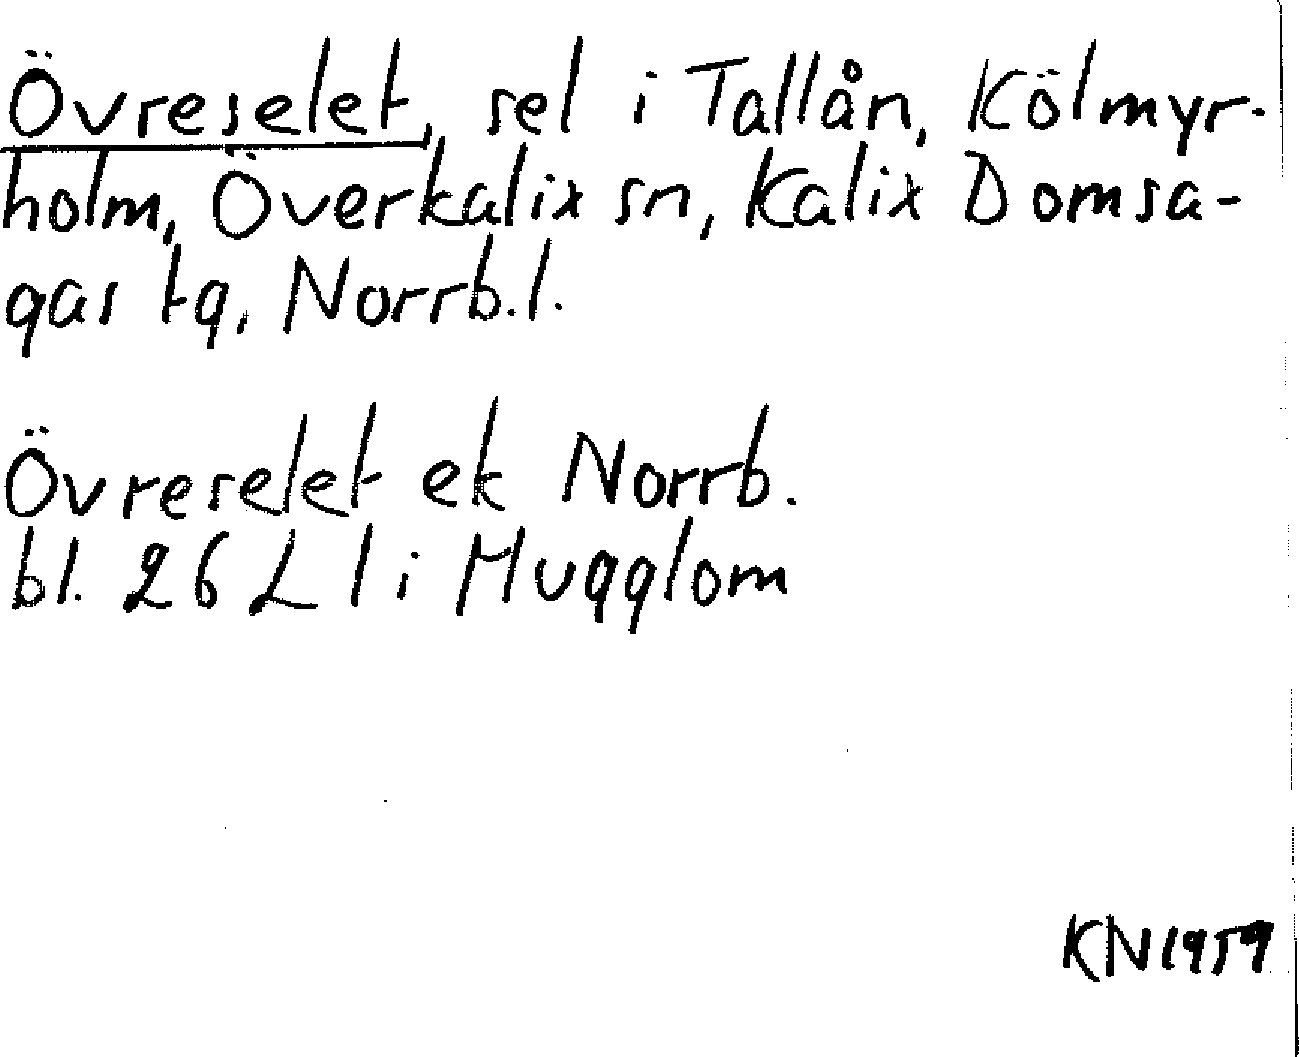 Övreselet, sel i Tallån, Kölmyr-
holm, Överkalix sn, Kalix Domsa-
gas tg, Norrb.l.
Övreselet ek Norrb.
bl. 26 L l i Mugglom
KN1959